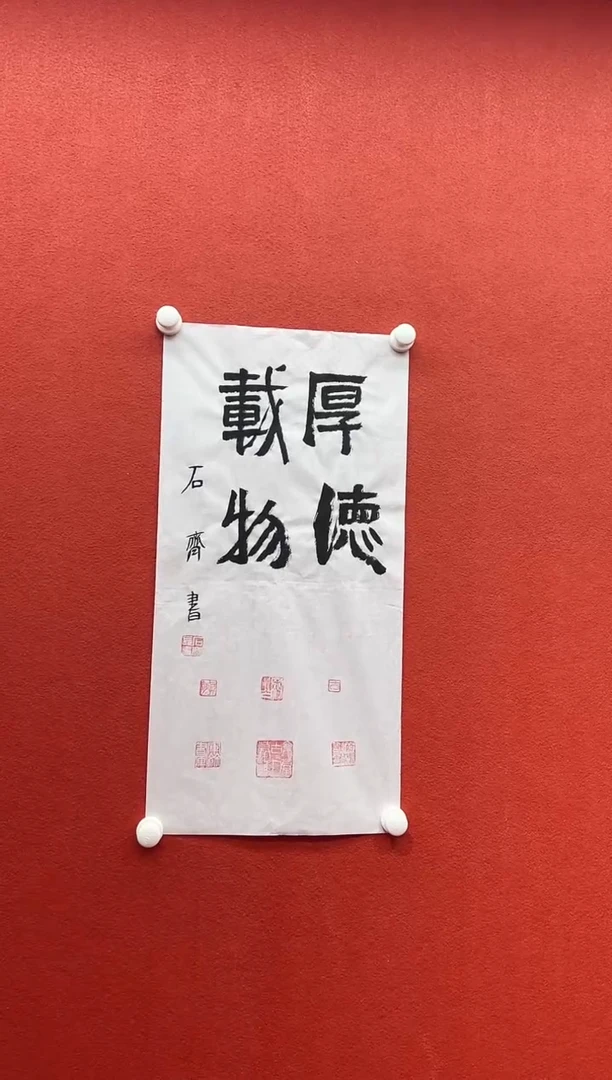 厚德
載物
石齊書